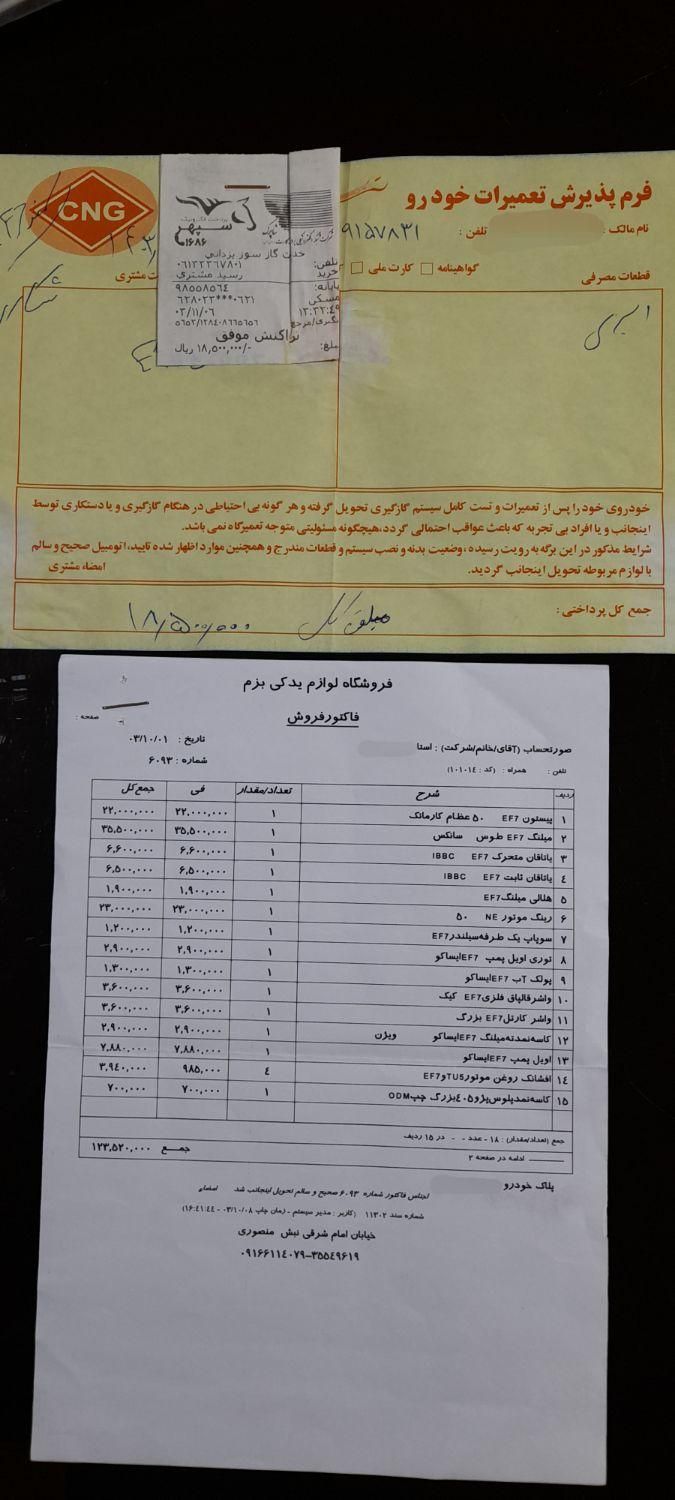 فرم پذیرش تعمیرات خودرو
CNG
نام مالک :
تلفن :
۹۱۵۷۸۳۱
گواهینامه
کارت ملی
مشتری
قطعات مصرفی
پرداخت الکترونیک
سپهر
۱۶۸۶
خدت گاز سوز یزدانی
تلفن: ۰۶۱۳۳۳۶۷۸۰۱
خرید رسید مشتری
پایانه: ۹۸۵۵۸۵۶۴
مسکن ۶۲۸۰۲۳***۰۶۲۱
۱۳:۳۲:۴۹ ۰۳/۱۱/۰۶
تراکنش موفق
مبلغ: ۱۸,۵۰۰,۰۰۰/- ریال
خودروی خود را پس از تعمیرات و تست کامل سیستم گازگیری تحویل گرفته و هر گونه بی احتیاطی در هنگام گازگیری و یا دستکاری توسط
اینجانب و یا افراد بی تجربه که باعث عواقب احتمالی گردد،هیچگونه مسئولیتی متوجه تعمیرگاه نمی باشد.
شرایط مذکور در این برگه به رویت رسیده ، وضعیت بدنه و نصب سیستم و قطعات مندرج و همچنین موارد اظهار شده تایید، اتومبیل صحیح و سالم
با لوازم مربوطه تحویل اینجانب گردید. امضاء مشتری
جمع کل پرداختی :
مبلغ کل ۱۸/۵۰۰/۰۰۰
فروشگاه لوازم یدکی بزم
فاکتورفروش
صفحه :
صورتحساب (آقای/خانم/شرکت) : استا
تاریخ : ۰۳/۱۰/۰۱
تلفن : همراه : (کد : ۱۰۱۰۱۴)
شماره : ۶۰۹۳
ردیف شرح تعداد/مقدار فی جمع کل
۱ پیستون EF7 ۵۰ عظام کارماتک ۱ ۲۲,۰۰۰,۰۰۰ ۲۲,۰۰۰,۰۰۰
۲ میلنگ EF7 طوس سانکس ۱ ۳۵,۵۰۰,۰۰۰ ۳۵,۵۰۰,۰۰۰
۳ یاتاقان متحرک EF7 IBBC ۱ ۶,۶۰۰,۰۰۰ ۶,۶۰۰,۰۰۰
۴ یاتاقان ثابت EF7 IBBC ۱ ۶,۵۰۰,۰۰۰ ۶,۵۰۰,۰۰۰
۵ هلالی میلنگEF7 ۱ ۱,۹۰۰,۰۰۰ ۱,۹۰۰,۰۰۰
۶ رینگ موتور NE ۵۰ ۱ ۲۳,۰۰۰,۰۰۰ ۲۳,۰۰۰,۰۰۰
۷ سوپاپ یک طرفهسیلندرEF7 ۱ ۱,۲۰۰,۰۰۰ ۱,۲۰۰,۰۰۰
۸ توری اویل پمپ EF7ایساکو ۱ ۲,۹۰۰,۰۰۰ ۲,۹۰۰,۰۰۰
۹ پولک آب EF7ایساکو ۱ ۱,۳۰۰,۰۰۰ ۱,۳۰۰,۰۰۰
۱۰ واشرقالپاق فلزیEF7 کیک ۱ ۳,۶۰۰,۰۰۰ ۳,۶۰۰,۰۰۰
۱۱ واشر کارتلEF7 بزرگ ۱ ۳,۶۰۰,۰۰۰ ۳,۶۰۰,۰۰۰
۱۲ کاسهنمدتهمیلنگ EF7ایساکو ویژن ۱ ۲,۹۰۰,۰۰۰ ۲,۹۰۰,۰۰۰
۱۳ اویل پمپ EF7ایساکو ۱ ۷,۸۸۰,۰۰۰ ۷,۸۸۰,۰۰۰
۱۴ افشانک روغن موتورTU5وEF7 ۴ ۹۸۵,۰۰۰ ۳,۹۴۰,۰۰۰
۱۵ کاسهنمدپلوسپژو۴۰۵بزرگ چپODM ۱ ۷۰۰,۰۰۰ ۷۰۰,۰۰۰
جمع (تعداد/مقدار) : ۱۸ - عدد - - در ۱۵ ردیف
ادامه در صفحه ۲
جمع ۱۲۳,۵۲۰,۰۰۰
پلاک خودرو
اجناس فاکتور شماره ۶۰۹۳ صحیح و سالم تحویل اینجانب شد امضاء
شماره سند ۱۱۳۰۲ (کاربر : مدیر سیستم - زمان چاپ ۰۳/۱۰/۰۸ - ۱۶:۴۱:۴۴)
خیابان امام شرقی نبش منصوری
۰۹۱۶۶۱۱۴۰۷۹-۳۵۵۴۹۶۱۹